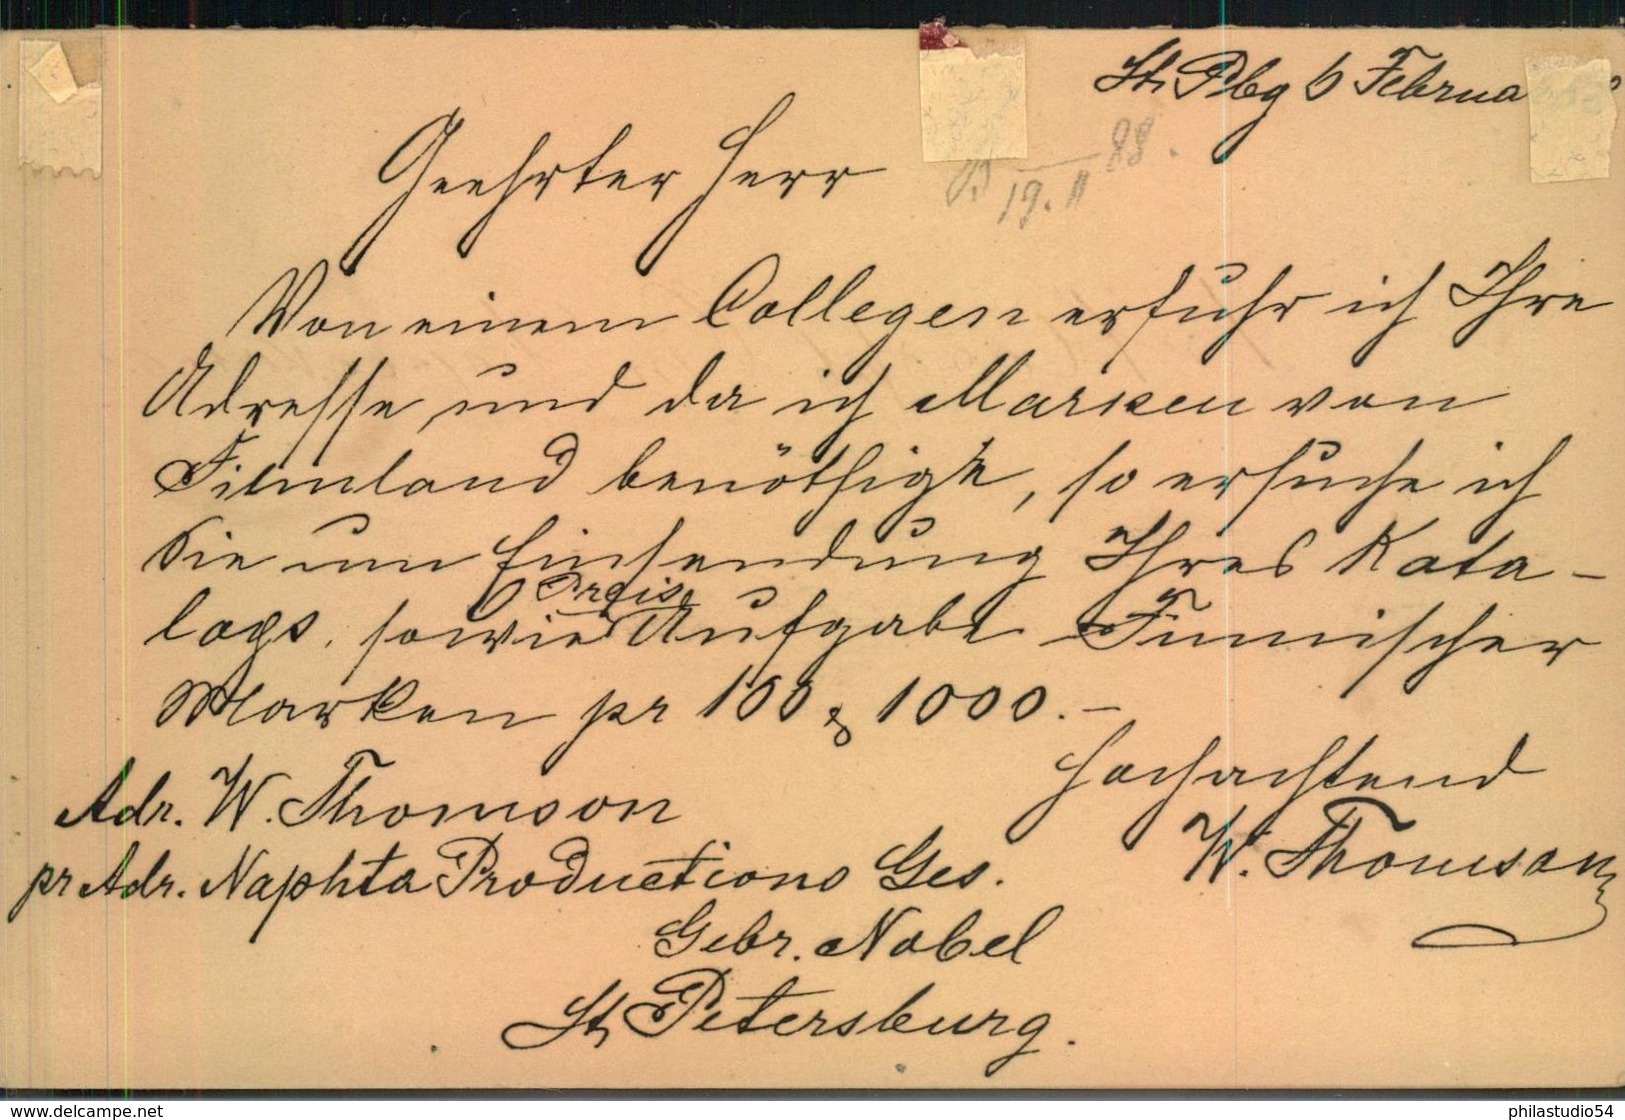 St. Pbg 6 Februa
88.
19. II
Geehrter Herr
Von einem Collegen erfuhr ich Ihre
Adresse und da ich Marken von
Finnland benöthige, so ersuche ich
Sie um Einsendung Ihres Kata-
logs, sowie Preis Aufgabe Finnischer
Marken pr 100 & 1000.–
Hochachtend
W. Thomson
Adr. W. Thomson
pr Adr. Naphta Productions Ges.
Gebr. Nobel
St. Petersburg.
www.delcampe.net
philastudio54